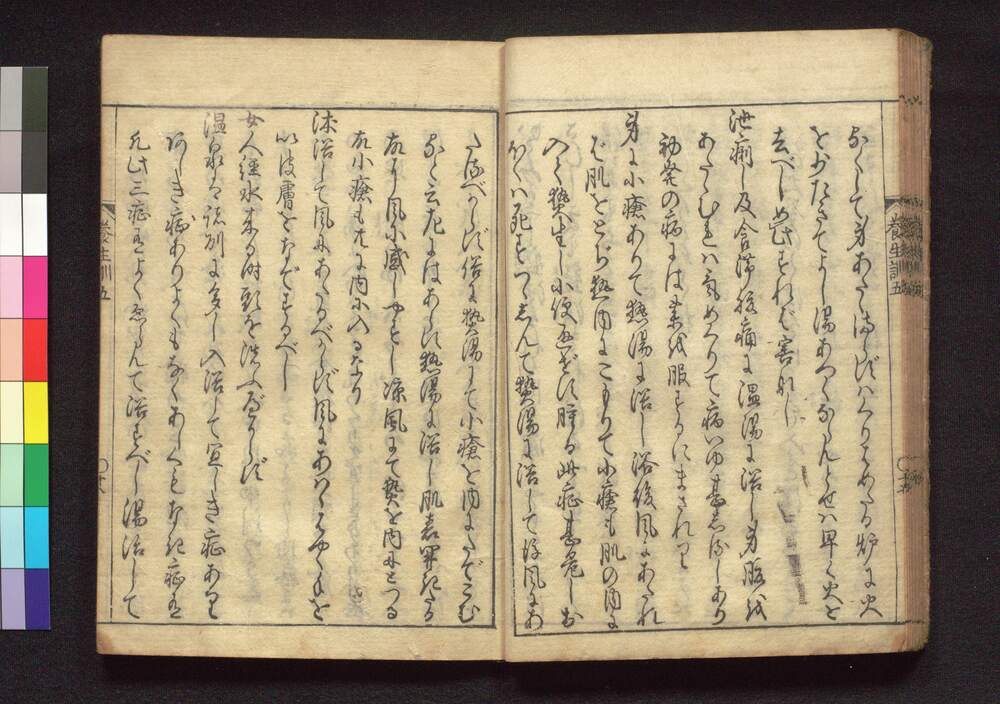 身あたゝまらずば炉に火
を少たきてよし湯あつくならんとせば早く火を
去べし如此すれば害なし
泄痢し及食滞腹痛に温湯に浴し身腹を
あたゝむれば気めぐりて病いゆ甚しるしあり
初発の病には薬を服するにまされり
身に小瘡ありて熱湯に浴し浴後風にあたれ
ば肌をとぢ熱内にこもりて小瘡も肌の内に
入て熱生し小便通ぜず腫る此症甚危しお
ほくは死すつゝしんで熱湯に浴して後風にあ
たるべからず俗に熱湯にて小瘡を内にたでこむ
と云左にはあらず熱湯に浴し肌表開きたる
故に風に感しやすし涼風にて熱を内にとづる
故小瘡も共に内に入るなり
沐浴して風にあたるべからず風にあはゞはやく手を
以皮膚をなでするべし
女人経水来る時頭を洗ふべからず
温泉は諸州に多し入浴して宜しき症あり
あしき症ありよくもなくあしくもなき症有
凡此三症有よくゑらんで浴すべし湯治して
養生訓五
養生訓五